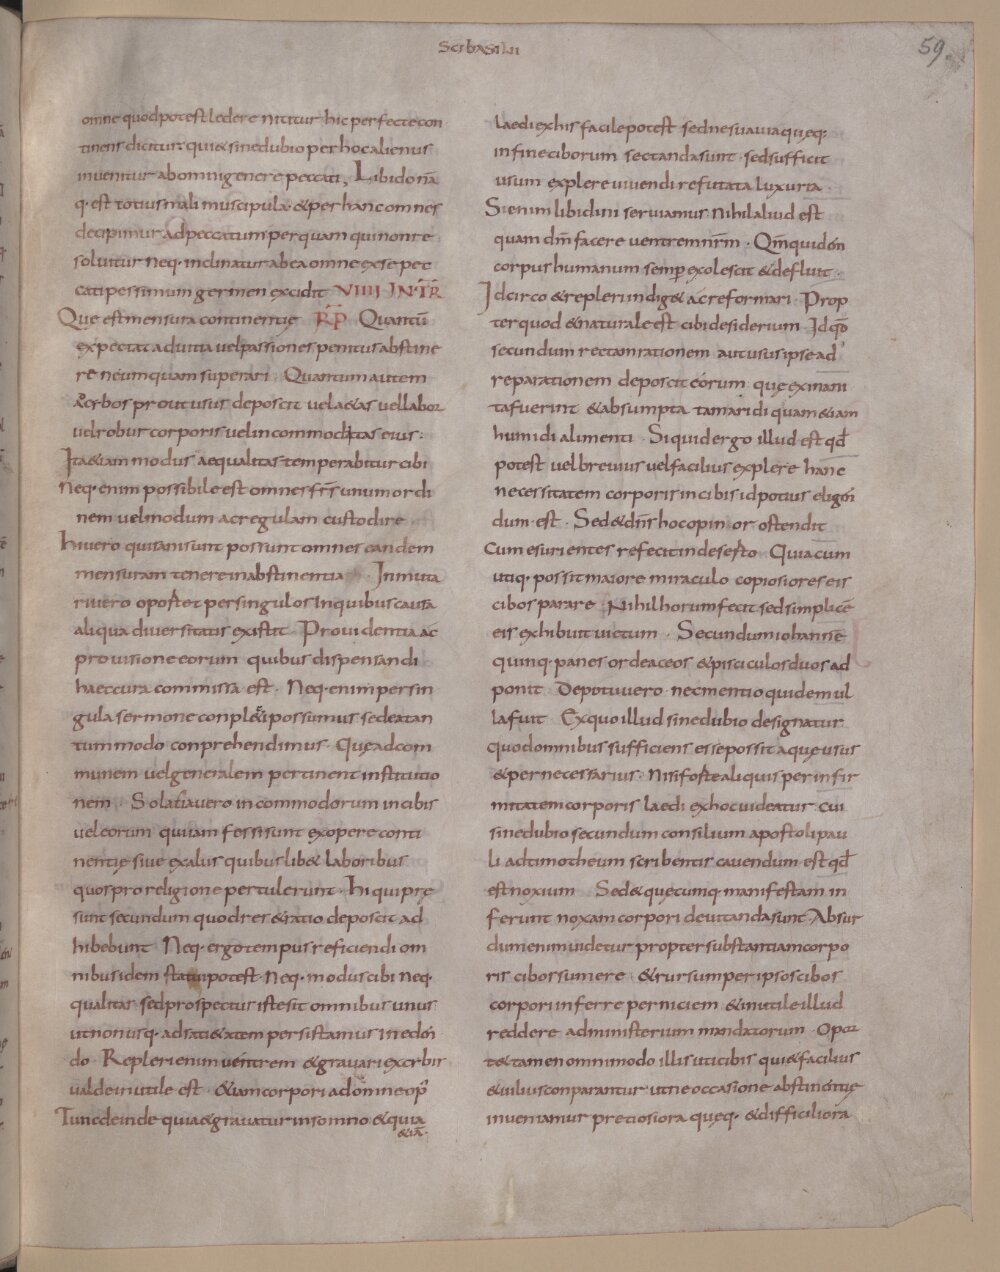 Sci basilii
59.
omne quod potest ledere nititur hic perfecte con
tinens dicitur qui & sine dubio per hoc alienus
invenitur ab omni genere peccati, Libido nā
q· est totius mali muscipula· & per hanc omnes
decipimur ad peccatum per quam qui non re
solvitur neq· inclinatur ab ea omne ex se pec
cati pessimum germen excidit VIIII INTR
Que est mensura continentię RP Quantū
expectat ad vitia vel passiones penitus abstine
re ne umquam superari · Quantum autem
ad cybos prout usus deposcit vel aetas vel labor
vel robur corporis vel incommoditas eius·
Ita & iam modus ae qualitas temperabitur cibi
Neq· enim possibile est omnes frs unum ordi
nem vel modum ac regulam custodire ·
hi vero qui sani sunt possunt omnes eandem
mensuram tenere in abstinentia · Inmuta
ri vero oportet per singulos In quibus causa
aliqua diversitatis existit · Providentia ac
provisione eorum quibus dispensandi
haec cura commissa est · Neq· enim per sin
gula sermone conplecti possumus sed ea tan
tummodo conprehendimus · Que ad com
munem vel generalem pertinent institutio
nem · Solatia vero in commodorum in cibis
vel eorum qui iam fessi sunt ex opere conti
nentię sive ex aliis quibuslib& laboribus
quos pro religione pertulerunt · hi qui pre
sunt secundum quod res & ratio deposcit ad
hibebunt · Neq· ergo tempus reficiendi om
nibus idem statui potest · Neq· modus cibi neq·
qualitas sed prospectus iste sit omnibus unus
ut non usq· ad sati&atem persistamus in edén
do · Repleri enim ventrem & gravari ex cybis
valde inutile est · & iam corpori ad omne op'
Tunc deinde quia & gravatur in somno & quia
& iā·
laedi ex his facile potest sed ne suavia queq·
in fine ciborum sectanda sunt · sed sufficit
usum explere vivendi refutata luxuria
Si enim libidini serviamus nihil aliud est
quam dm̄ facere ventrem nr̄m · Qm̄ quidén
corpus humanum semp exolescit & defluit ·
Idcirco & repleri indig& ac reformari · Prop
ter quod & naturale est cibi desiderium · Idqo
secundum rectam rationem aut usus ipse ad
reparationem deposcit eorum que exinani
ta fuerint & absumpta tam aridi quam & iam
humidi alimenti · Siquid ergo illud est qd
potest vel brevius vel facilius explere hanc
necessitatem corporis in cibis id potius eligén
dum est · Sed & dn̄s hoc opinor ostendit
Cum esurientes refecit in deserto Quia cum
utiq· possit maiore miraculo copiosiores eis
cibos parare Nihil horum fecit sed simplicē
eis exhibuit victum · Secundum iohannē
quinq· panes ordeaceos & pisciculos duos ad
ponit · De potu vero nec mentio quidem ul
la fuit · Ex quo illud sine dubio designatur
quod omnibus sufficiens esse possit aque usus
& per necessarius · Nisi forte aliquis per infir
mitatem corporis laedi ex hoc videatur · cui
sine dubio secundum consilium apostoli pau
li ad timotheum scribentis cavendum est qd
est noxium · Sed & quecumq manifestam in
ferunt noxam corpori devitanda sunt · Absur
dum enim videtur propter substantiam corpo
ris cibos sumere · & rursum per ipsos cibos
corpori inferre perniciem & inutile illud
reddere administerium mandatorum · Opor
t& tamen omnimodo illis uti cibis qui & facilius
& vilius conparantur ut ne occasione abstinéntię
inveniamur pretiosiora queq· & difficiliora